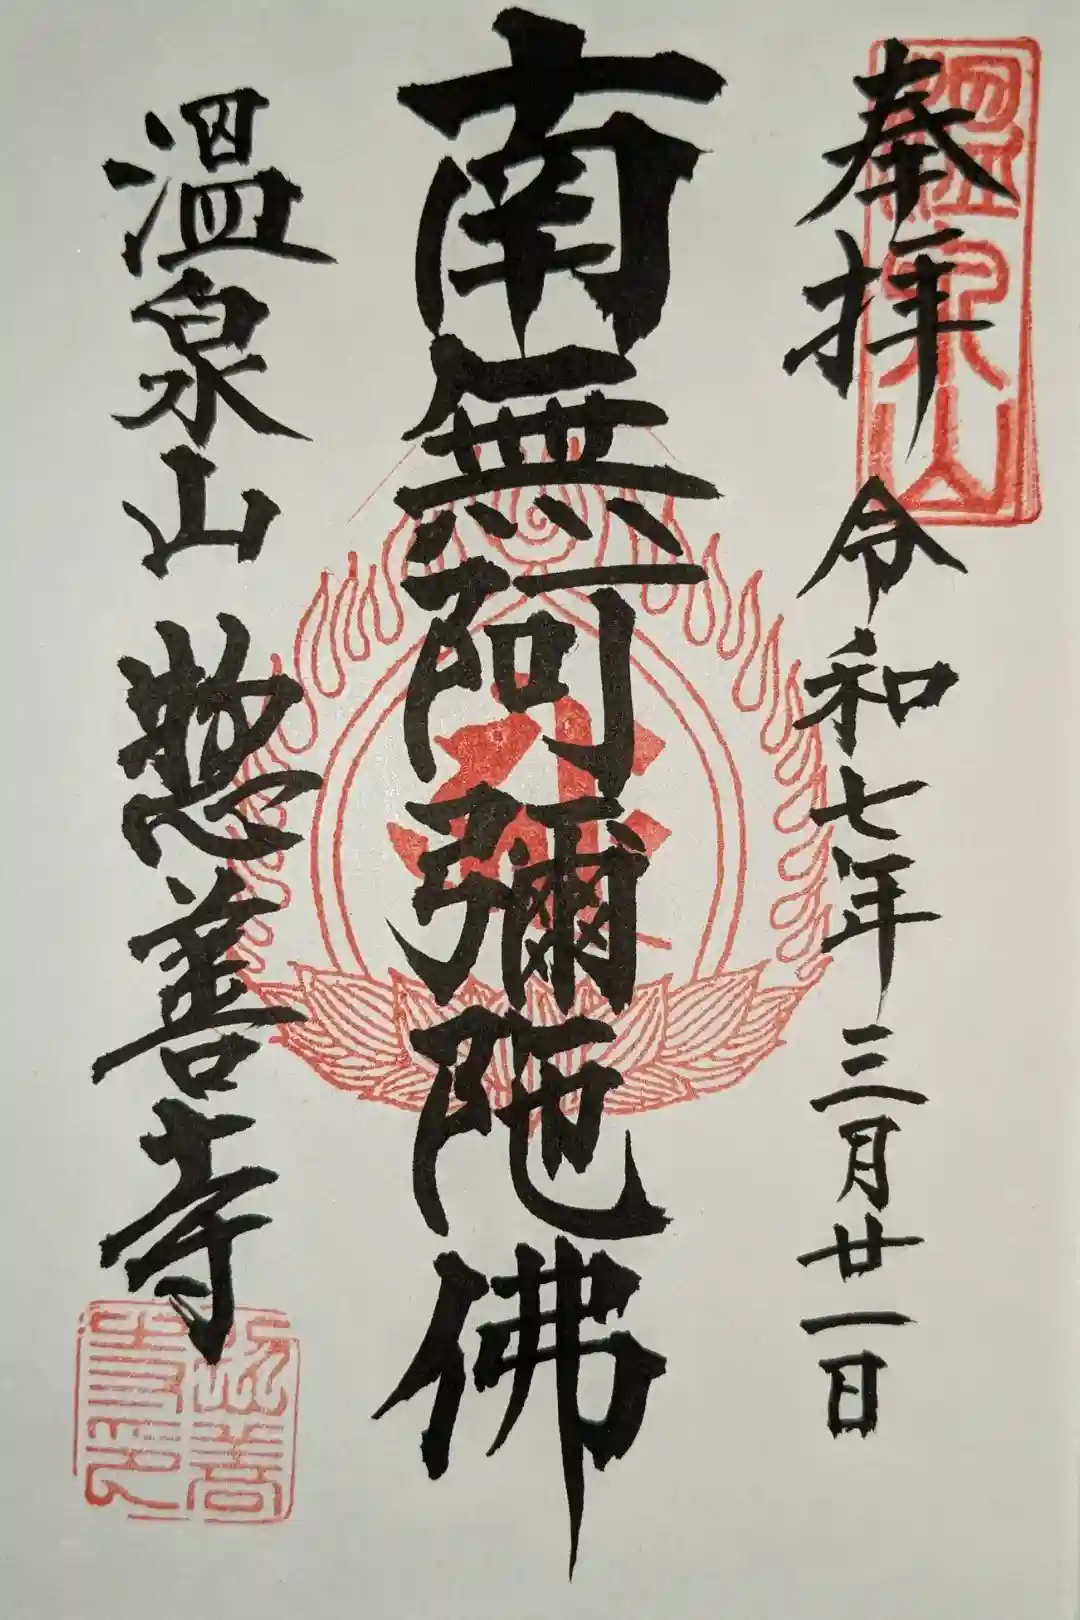 奉拝 令和七年三月廿一日
溫泉山
南無阿彌陀佛
溫泉山 惣善寺
惣善寺印